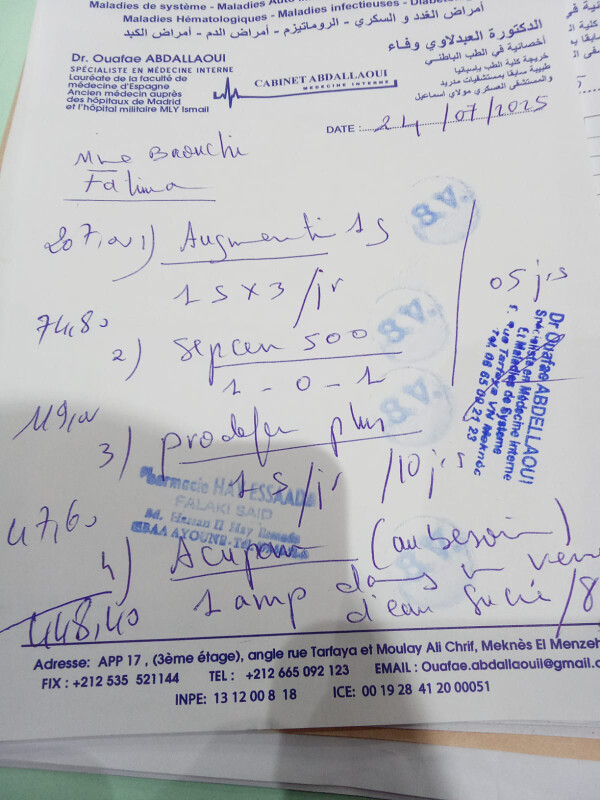 Maladies de système - Maladies Auto
Maladies Hématologiques - Maladies infectieuses - Diabète
أمراض الغدد و السكري - الروماتيزم - أمراض الدم - أمراض الكبد
Dr. Ouafae ABDALLAOUI
SPÉCIALISTE EN MÉDECINE INTERNE
Lauréate de la faculté de
médecine d'Espagne
Ancien médecin auprès
des hôpitaux de Madrid
et l'hôpital militaire MLY Ismail
CABINET ABDALLAOUI
MEDECINE INTERNE
الدكتورة العبدلاوي وفاء
أخصائية في الطب الباطني
خريجة كلية الطب بإسبانيا
طبيبة سابقا بمستشفيات مدريد
والمستشفى العسكري مولاي اسماعيل
DATE : 24/07/2025
Mme Baouchi
Fatima
207,00 1) Augmentin 1S
1S x 3 /jr
05 jrs
74,80
2) Sepcen 500
1 - 0 - 1
119,00
3) prodefer plus
1S/jr /10 jrs
47,60
4) Acupan (au besoin)
1 amp dans un verre
d'eau sucré /8
448,40
Dr Ouafae ABDELLAOUI
Spécialiste en Médecine Interne
Et Maladies de Système
rue Tarfaya VN Meknès
Tél: 06 65 09 21 23
Pharmacie HAY ESSAADA
FALAKI SAID
Bd. Hassan II Hay Essaada
Adresse: APP 17 , (3ème étage), angle rue Tarfaya et Moulay Ali Chrif, Meknès El Menzeh
FIX : +212 535 521144 TEL : +212 665 092 123 EMAIL : Ouafae.abdallaouii@gmail.c
INPE: 13 12 00 8 18 ICE: 00 19 28 41 20 00051